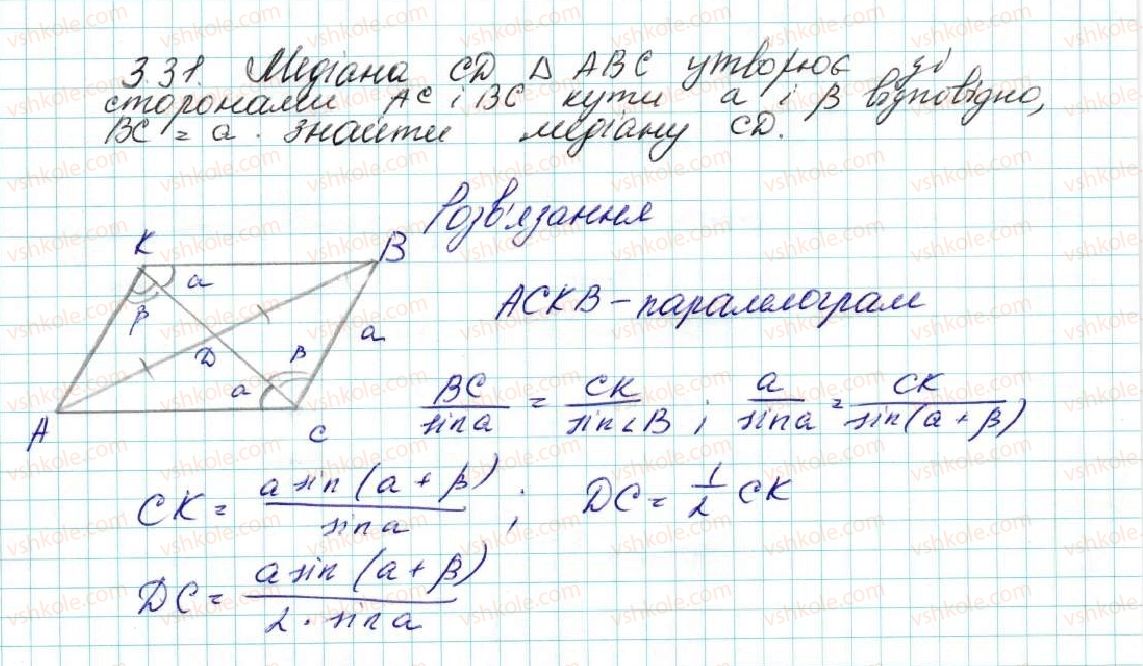 3.31. Медіана CD Δ ABC утворює зі
сторонами AC і BC кути a і β відповідно,
BC = a. Знайти медіану CD.
Розв'язання
K
B
a
β
D
a
β
a
A
C
ACKB – паралелограм
BC/sin a = CK/sin∠B ; a/sin a = CK/sin(a + β)
CK = a sin(a + β)/sin a ; DC = 1/2 CK
DC = a sin(a + β)/2 · sin a